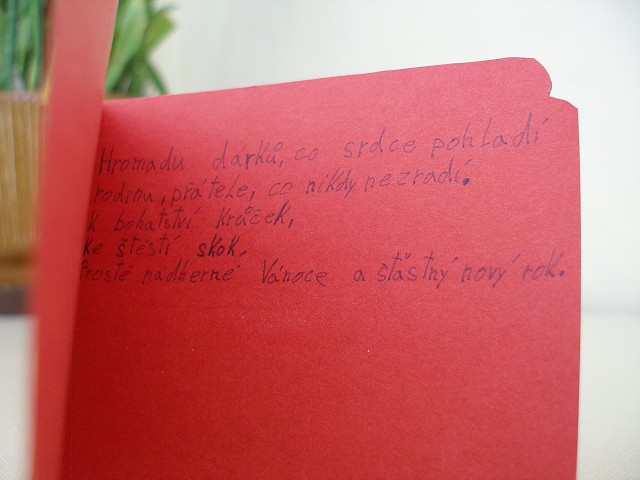 Hromadu dárků, co srdce pohladí
rodinu, přátele, co nikdy nezradí.
K bohatství krůček,
ke štěstí skok.
Prostě nádherné Vánoce a štåstný nový rok.